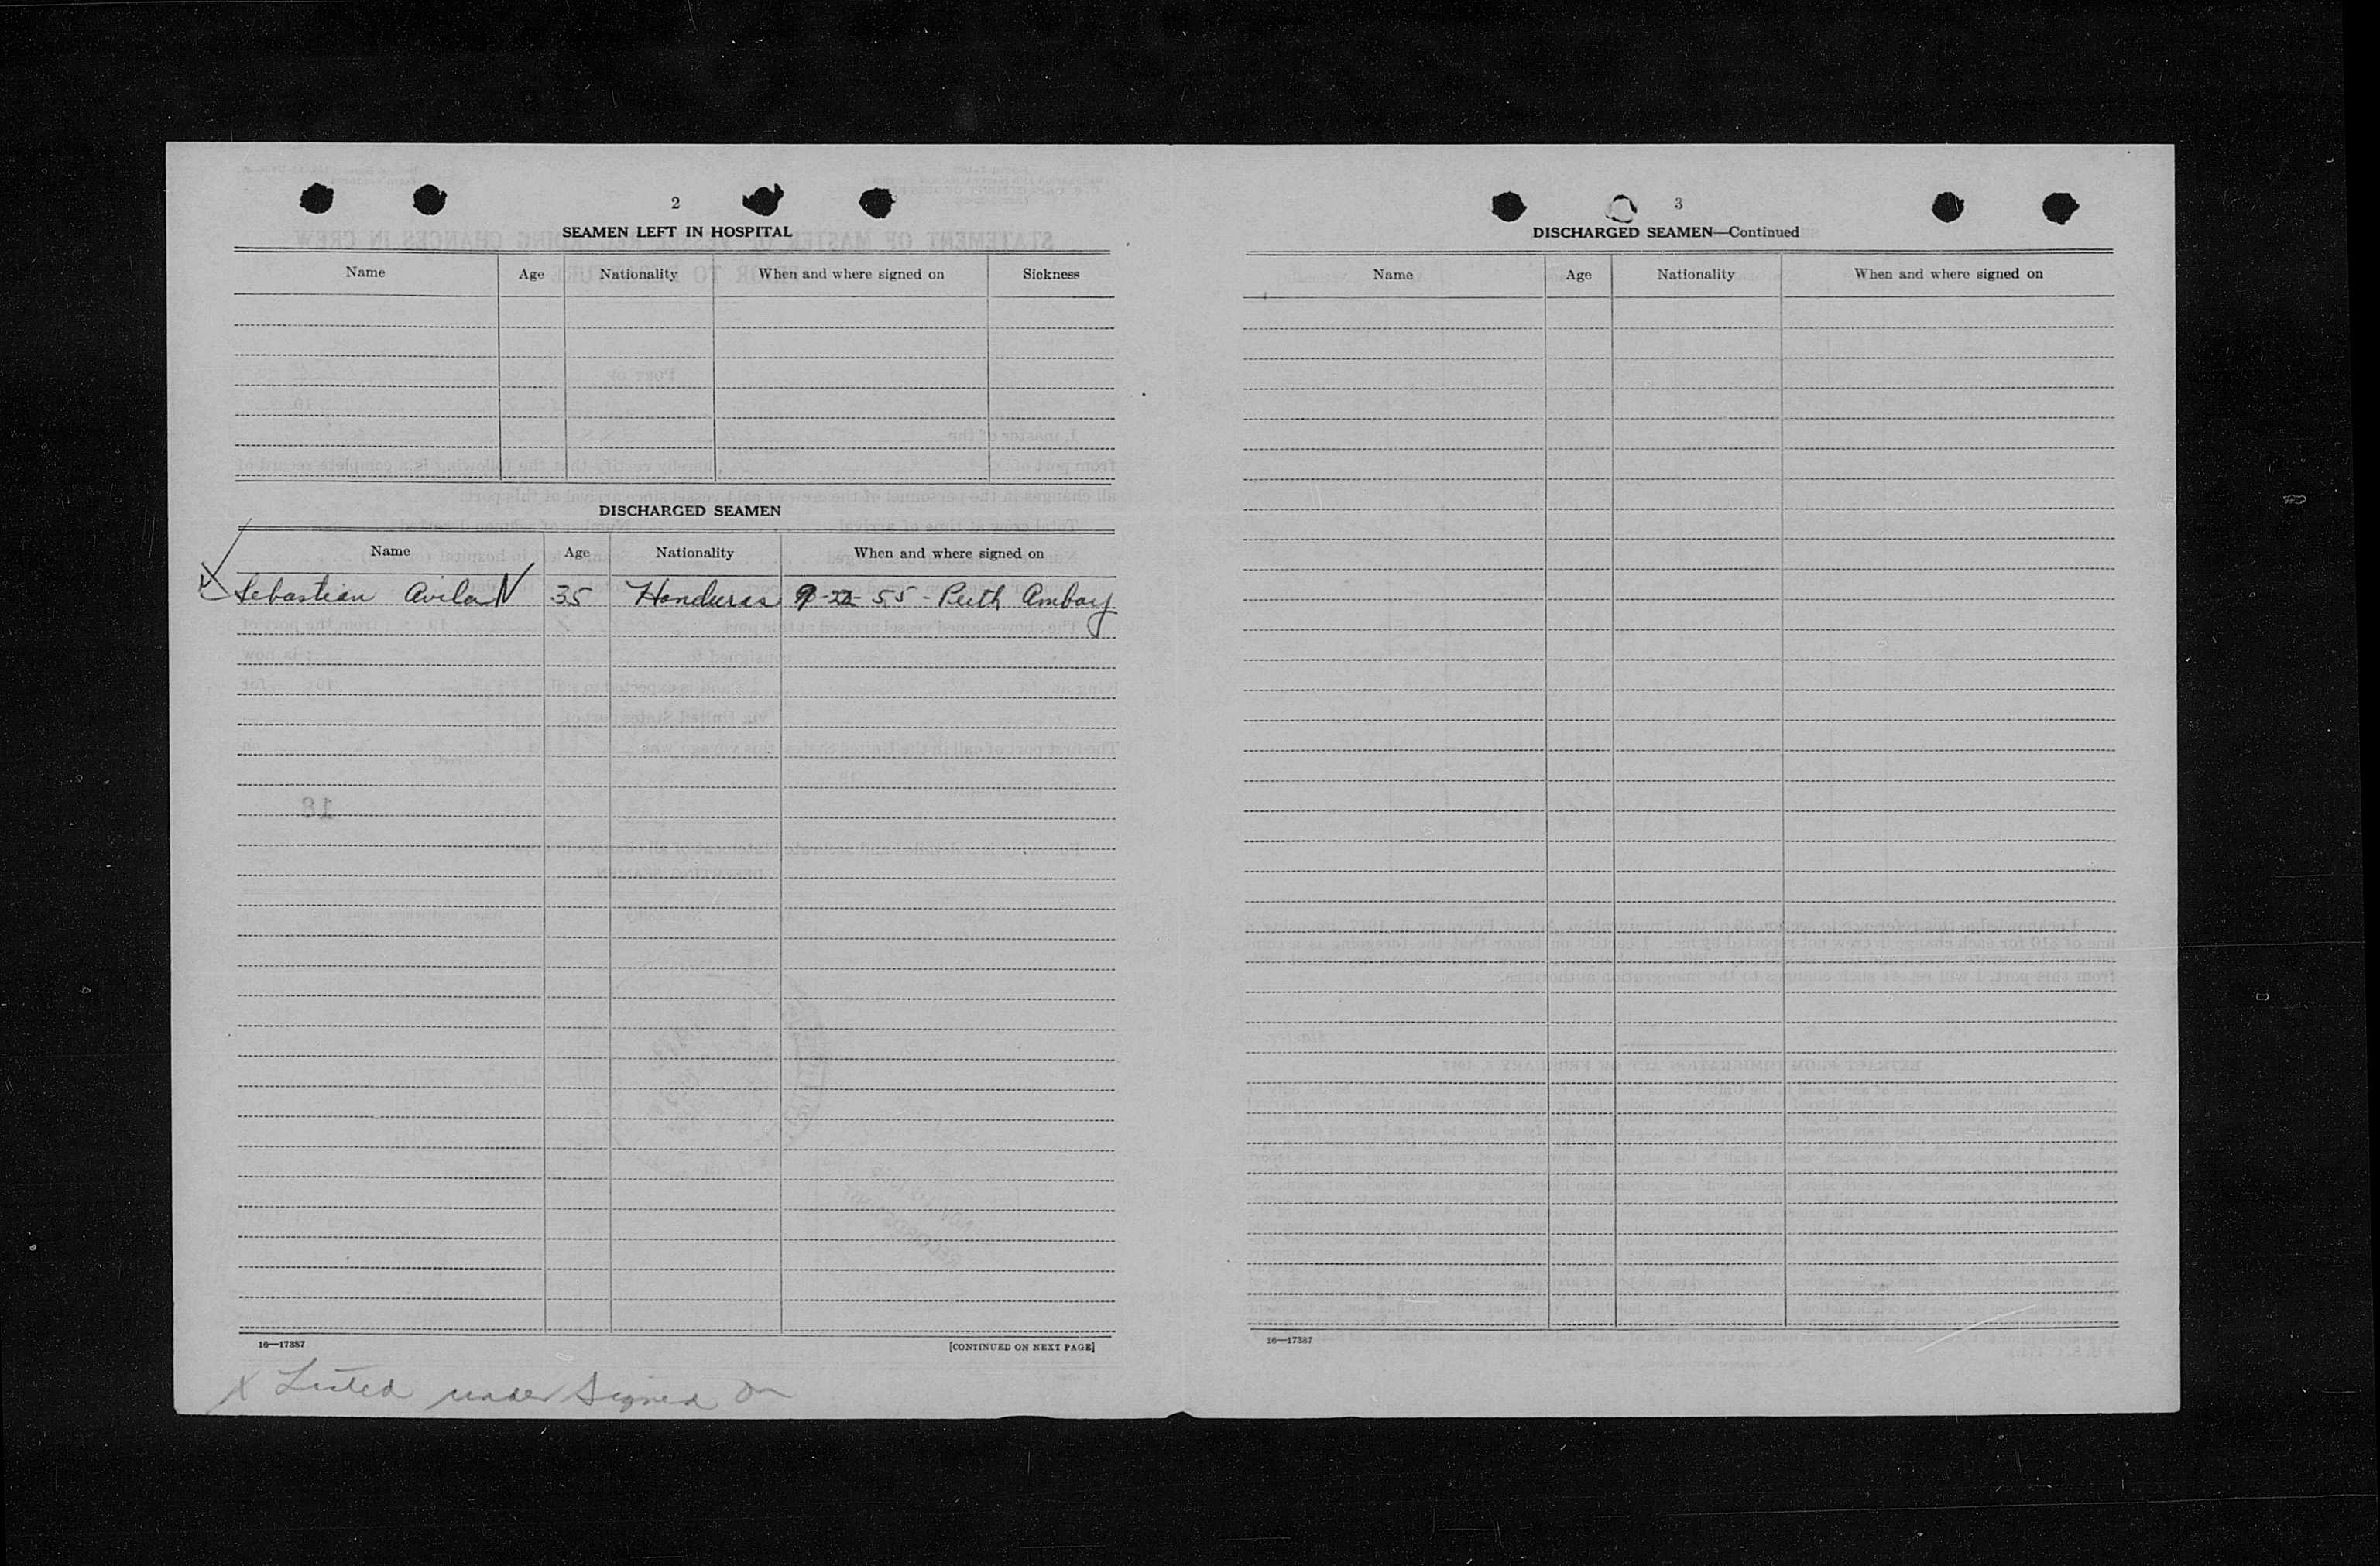 2
SEAMEN LEFT IN HOSPITAL
Name Age Nationality When and where signed on Sickness
DISCHARGED SEAMEN
Name Age Nationality When and where signed on
Sebastian Avila 35 Honduras 9-22-55- Perth Amboy
16—17387 [CONTINUED ON NEXT PAGE]
X Listed under Signed On
3
DISCHARGED SEAMEN—Continued
Name Age Nationality When and where signed on
16—17387